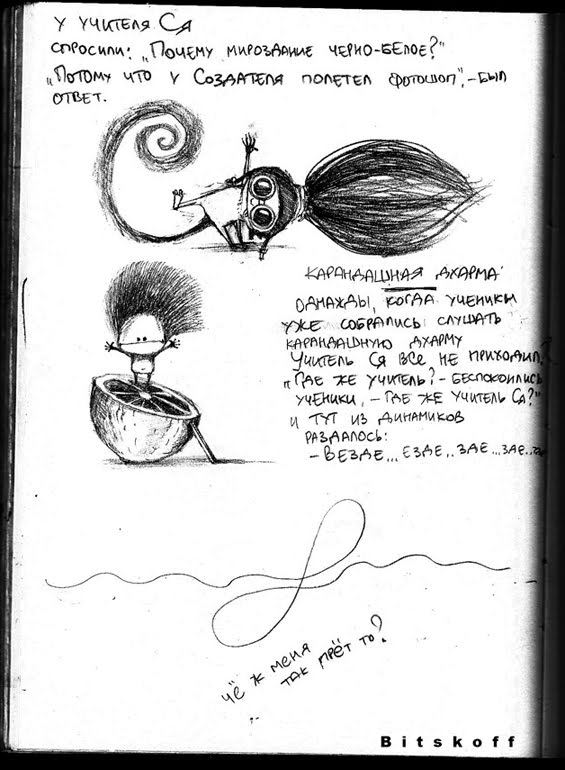 У УЧИТЕЛЯ СЯ
СПРОСИЛИ: „ПОЧЕМУ МИРОЗДАНИЕ ЧЕРНО-БЕЛОЕ?"
„ПОТОМУ ЧТО У СОЗДАТЕЛЯ ПОЛЕТЕЛ ФОТОШОП", – БЫЛ
ОТВЕТ.
КАРАНДАШНАЯ ДХАРМА
ОДНАЖДЫ, КОГДА УЧЕНИКИ
УЖЕ СОБРАЛИСЬ СЛУШАТЬ
КАРАНДАШНУЮ ДХАРМУ
УЧИТЕЛЬ СЯ ВСЕ НЕ ПРИХОДИЛ.
„ГДЕ ЖЕ УЧИТЕЛЬ? – БЕСПОКОИЛИСЬ
УЧЕНИКИ, – ГДЕ ЖЕ УЧИТЕЛЬ СЯ?"
И ТУТ ИЗ ДИНАМИКОВ
РАЗДАЛОСЬ:
– ВЕЗДЕ... ЕЗДЕ.. ЗДЕ... ЗДЕ..
ЧЁ Ж МЕНЯ
ТАК ПРЁТ ТО?
Bitskoff